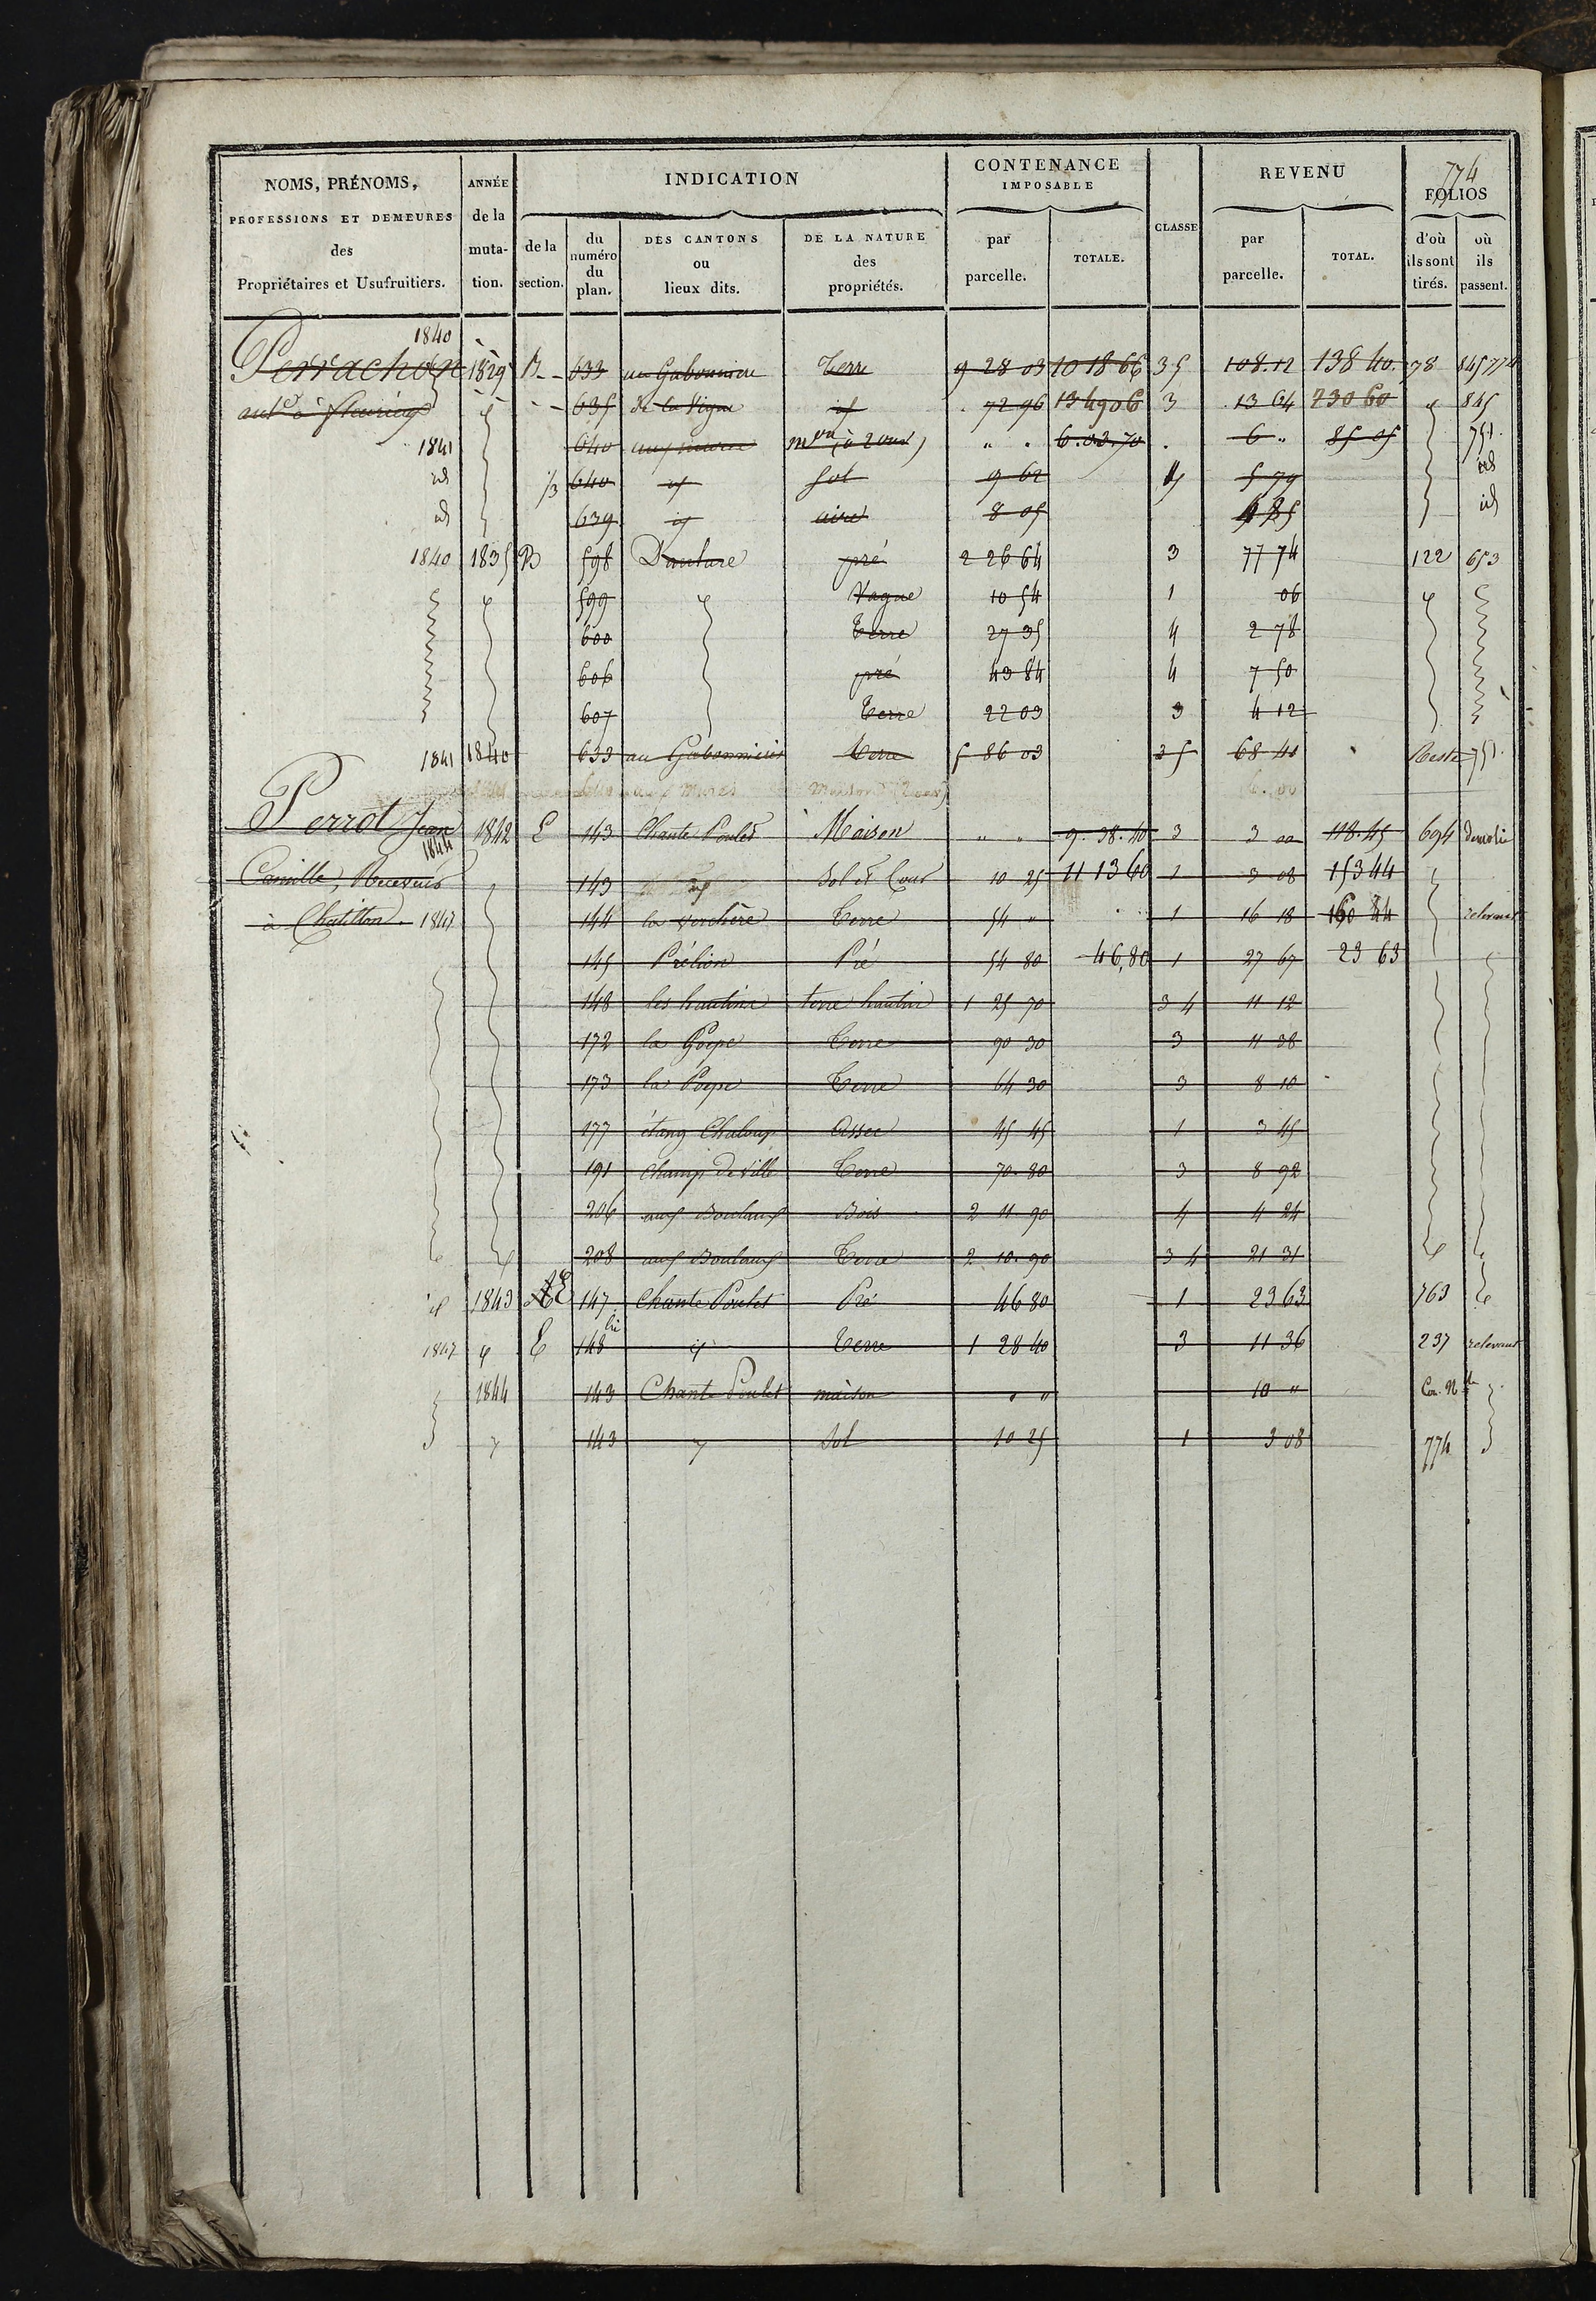 774
NOMS, PRÉNOMS, PROFESSIONS ET DEMEURES des Propriétaires et Usufruitiers.
ANNÉE de la mutation.
INDICATION
de la section.
du numéro du plan.
DES CANTONS ou lieux dits.
DE LA NATURE des propriétés.
CONTENANCE IMPOSABLE
par parcelle.
TOTALE.
CLASSE
REVENU
par parcelle.
TOTAL.
FOLIOS
d'où ils sont tirés.
où ils passent.
1840
Perrachon 1829 B 633 Terre 9 28 03 10 18 66 35 108.12 138 40. 78 845 774
à 635 de la Vigne id 72 96 13 49 06 3 13 64 230 60 845
1841 640 mon (à 2 ouv) " " 6.03.70 6 " 85 05 751
id 1/3 640 id sol 9 62 5 79 id
id 639 id aire 8 05 4 85 id
1840 1835 B 598 pré 2 26 64 3 77 74 122 653
599 Vague 10 54 1 06
600 Terre 27 35 4 2 78
606 pré 43 84 4 7 50
607 Terre 22 03 3 4 12
1841 1840 633 au Terre 5 86 03 35 68 40 Reste 751
Perrot Jean 1842 E 143 Chante Poulet Maison " " 9.38.40 3 3 00 118.45 694 démolie
1844
Camille, à Chatillon 1847
143 Sol et Cour 10 25 11 13 60 1 3 08 153 44
144 la verchère Terre 54 " 1 16 18 160 44 relevant
145 Prélion Pré 54 80 46,80 1 27 67 23 63
148 les hautins terre hautin 1 25 70 3 4 11 12
172 la Poype Terre 90 30 3 11 38
173 la Poype Terre 64 30 3 8 10
177 étang Chaloup Assec 45 45 1 3 45
191 Champ de ville Terre 70.80 3 8 92
206 aux Boulaux Bois 2 11 90 4 4 24
208 aux Boulaux Terre 2 10.90 3 4 21 31
id 1843 E 147 Chante Poulet Pré 46 80 1 23 63 763
1847 E 148 bis id Terre 1 28 40 3 11 36 237 relevant
1844 143 Chante Poulet maison " " 10 " Con. Nlle
143 Sol 10 25 1 3 08 774